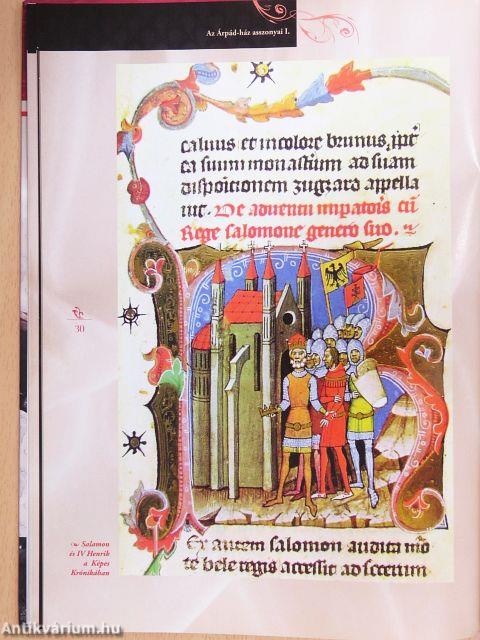 Az Árpád-ház asszonyai I.
caluus et incolore brunus, ipt
ea suum monastium ad suam
dispoitionem zugzard appella
uit. De aduentu impatois cu
Rege salomone genero suo.
30
Salamon
és IV Henrik
a Képes
Krónikában
Ex autem salomon audita mo
te bele regis accessit ad
Antikvárium.hu